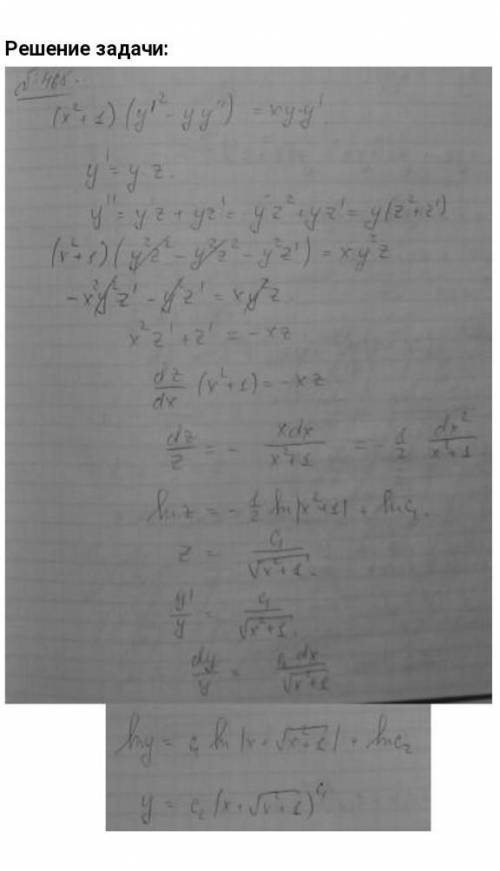 Решение задачи:
(x²+1)(y'² - yy'') = xy·y'.
y' = yz.
y'' = y'z + yz' = yz² + yz' = y(z²+z')
(x²+1)(y²z² - y²z² - y²z') = xy²z
-x²y²z' - y²z' = xy²z
x²z' + z' = -xz
dz/dx (x²+1) = -xz
dz/z = - xdx/x²+1 = - 1/2 dx²/x²+1
ln z = - 1/2 ln|x²+1| + ln c₁.
z = c₁/√x²+1.
y'/y = c₁/√x²+1.
dy/y = c₁dx/√x²+1
ln y = c₁ ln|x+√x²+1| + ln c₂
y = c₂(x+√x²+1)^c₁